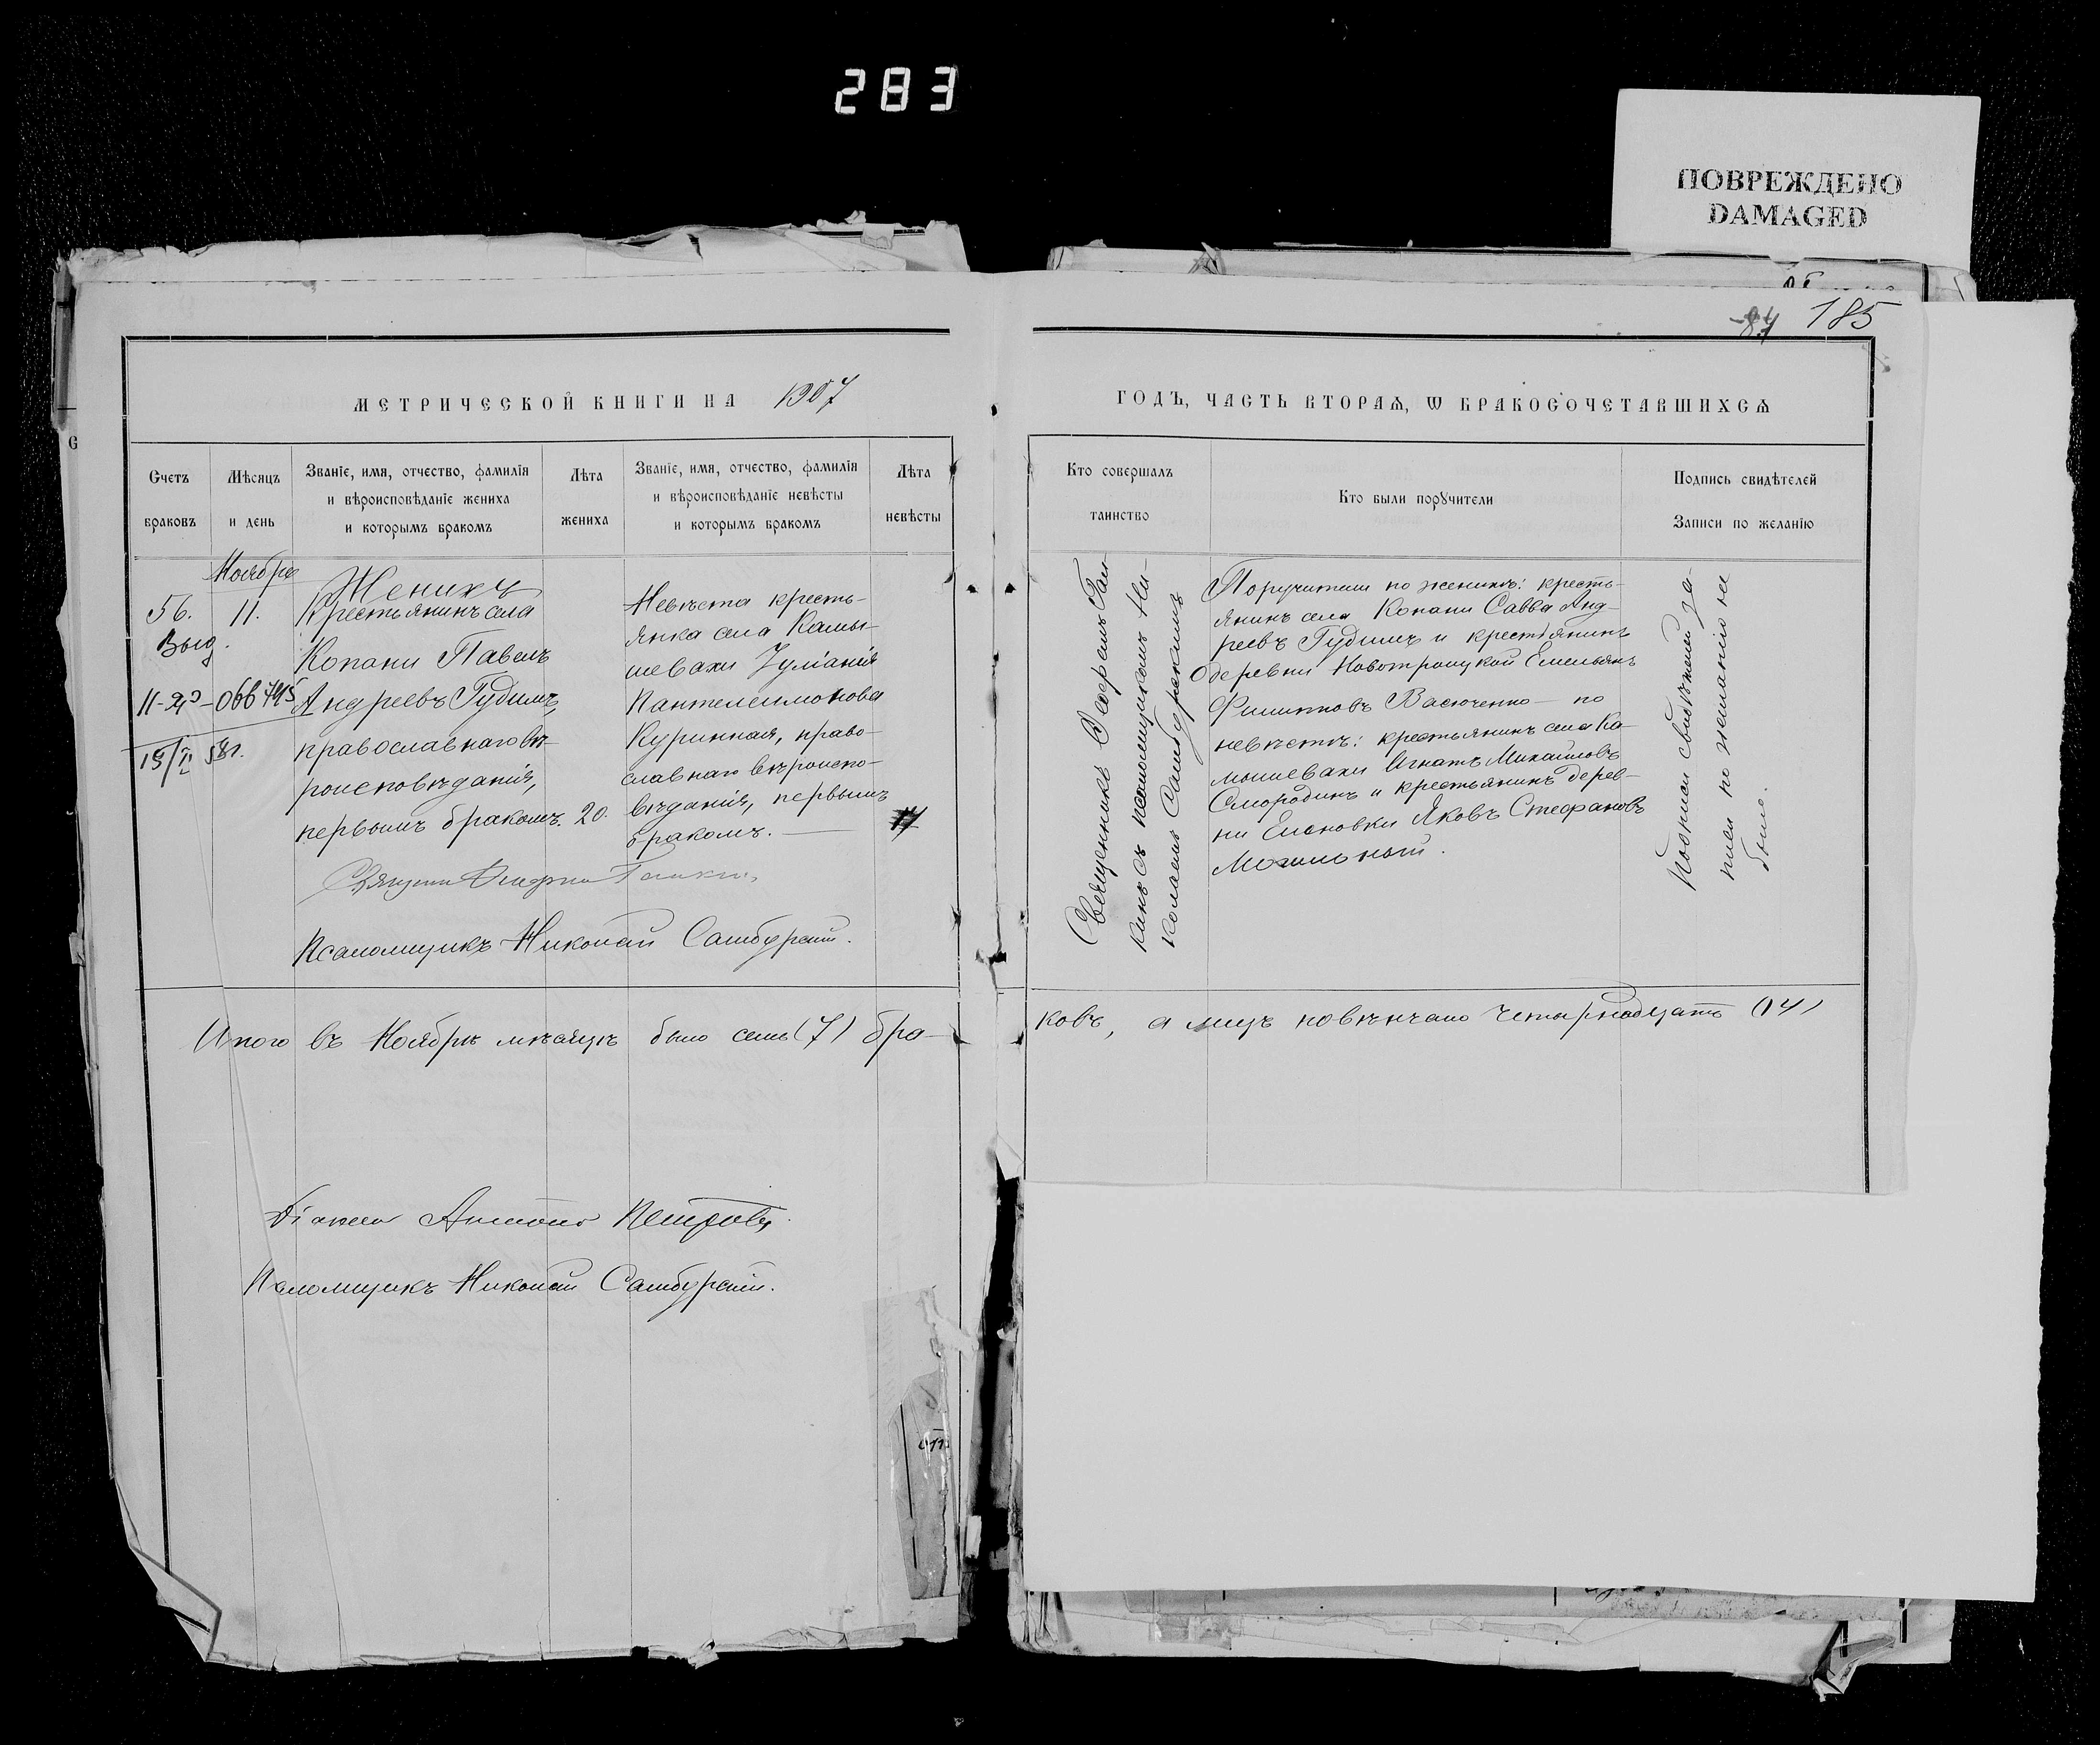 283
ПОВРЕЖДЕНО
DAMAGED
185
МЕТРИЧЕСКОЙ КНИГИ НА 1907
ГОДЪ, ЧАСТЬ ВТОРАѦ, Ѡ БРАКОСОЧЕТАВШИХСѦ
Счетъ
браковъ
Мѣсяцъ
и день
Званіе, имя, отчество, фамилія
и вѣроисповѣданіе жениха
и которымъ бракомъ
Лѣта
жениха
Званіе, имя, отчество, фамилія
и вѣроисповѣданіе невѣсты
и которымъ бракомъ
Лѣта
невѣсты
Кто совершалъ
таинство
Кто были порꙋчители
Подпись свидѣтелей
Записи по желанію
Ноябрь
56.
11.
Выд.
11-ЯЭ-066745
19/II 58г.
Женихъ
Крестьянинъ села
Копани Павелъ
Андреевъ Гудимъ,
православнаго вѣ-
роисповѣданія,
первымъ бракомъ.
20.
Невѣста кресть-
янка села Камы-
шевахи Іуліанія
Пантелеимонова
Куринная, право-
славнаго вѣроиспо-
вѣданія, первымъ
бракомъ.
17
Псаломщикъ Николай Самбурскій.
Священникъ Георгій Гал-
кинъ съ псаломщикомъ Ни-
колаемъ Самбурскимъ
Поручители по женихѣ: кресть-
янинъ села Копани Савва Анд-
реевъ Гудимъ и крестьянинъ
деревни Новотроицкой Емельянъ
Филипповъ Васюченко — по
невѣстѣ: крестьянинъ села Ка-
мышевахи Игнатъ Михайловъ
Смородинъ и крестьянинъ дерев-
ни Еленовки Яковъ Стефановъ
Могильный.
Подписи свидѣтелей за-
писи по желанію не
было.
Итого въ Ноябрѣ мѣсяцѣ было семь (7) бра-
ковъ, а лицъ повѣнчано четырнадцать (14)
Діаконъ Антоній Петровъ
Псаломщикъ Николай Самбурскій.